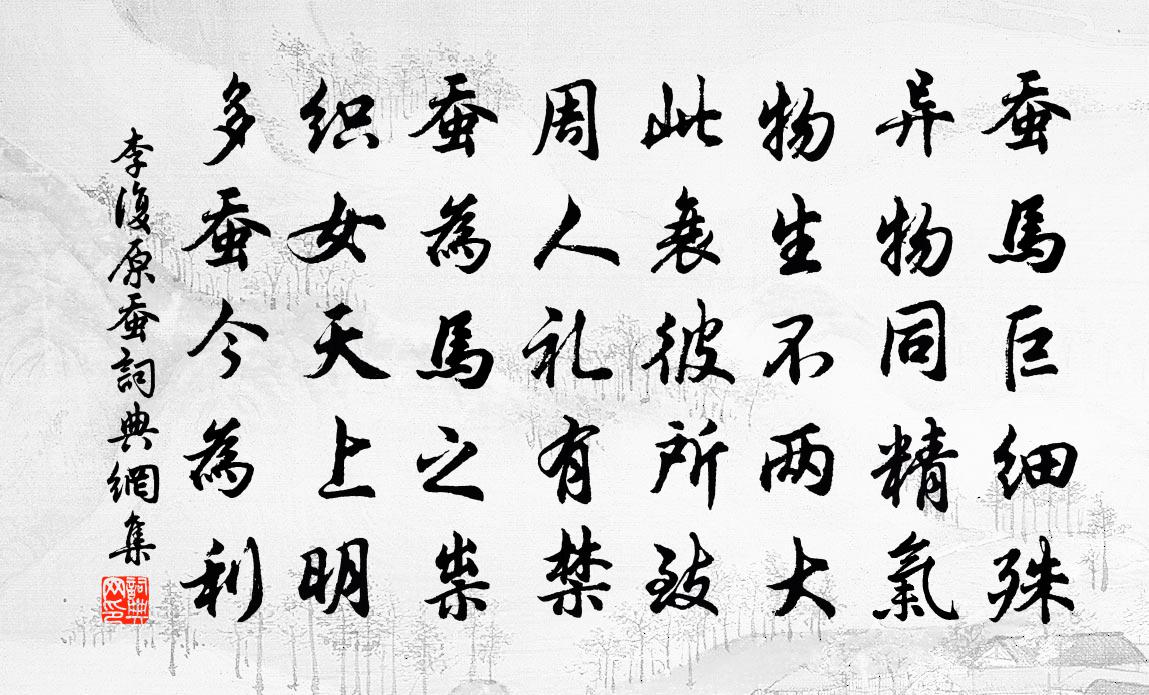 蚕馬巨细殊
异物同精氣
物生不两大
此衰彼所致
周人礼有禁
蚕為馬之祟
织女天上明
多蚕今為利
李復原蚕詞典網集
詞典網印